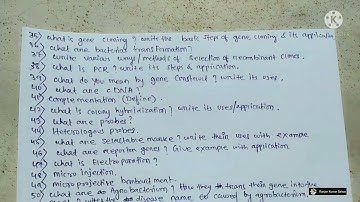 35) What is gene cloning? write the basic steps of gene cloning & its application
36) What are bacterial transformation?
37) write various ways/methods of selection of recombinant clones.
38) What is PCR? write its steps & application.
39) What do you mean by gene construct? write its uses,
40) What are cDNA?
41) complementation (Define).
42) What is colony hybridization? write its uses/application.
43) What are probes?
44) Heterologous probes.
45) What are Detectable marker? write their uses with example
46) What are reporter genes? Give example with application
47) What is Electroporation?
48) micro Injection.
49) microprojective bombardment.
50) What are Agrobacterium? How they trans their gene into the
disease name caused by agrobacterium